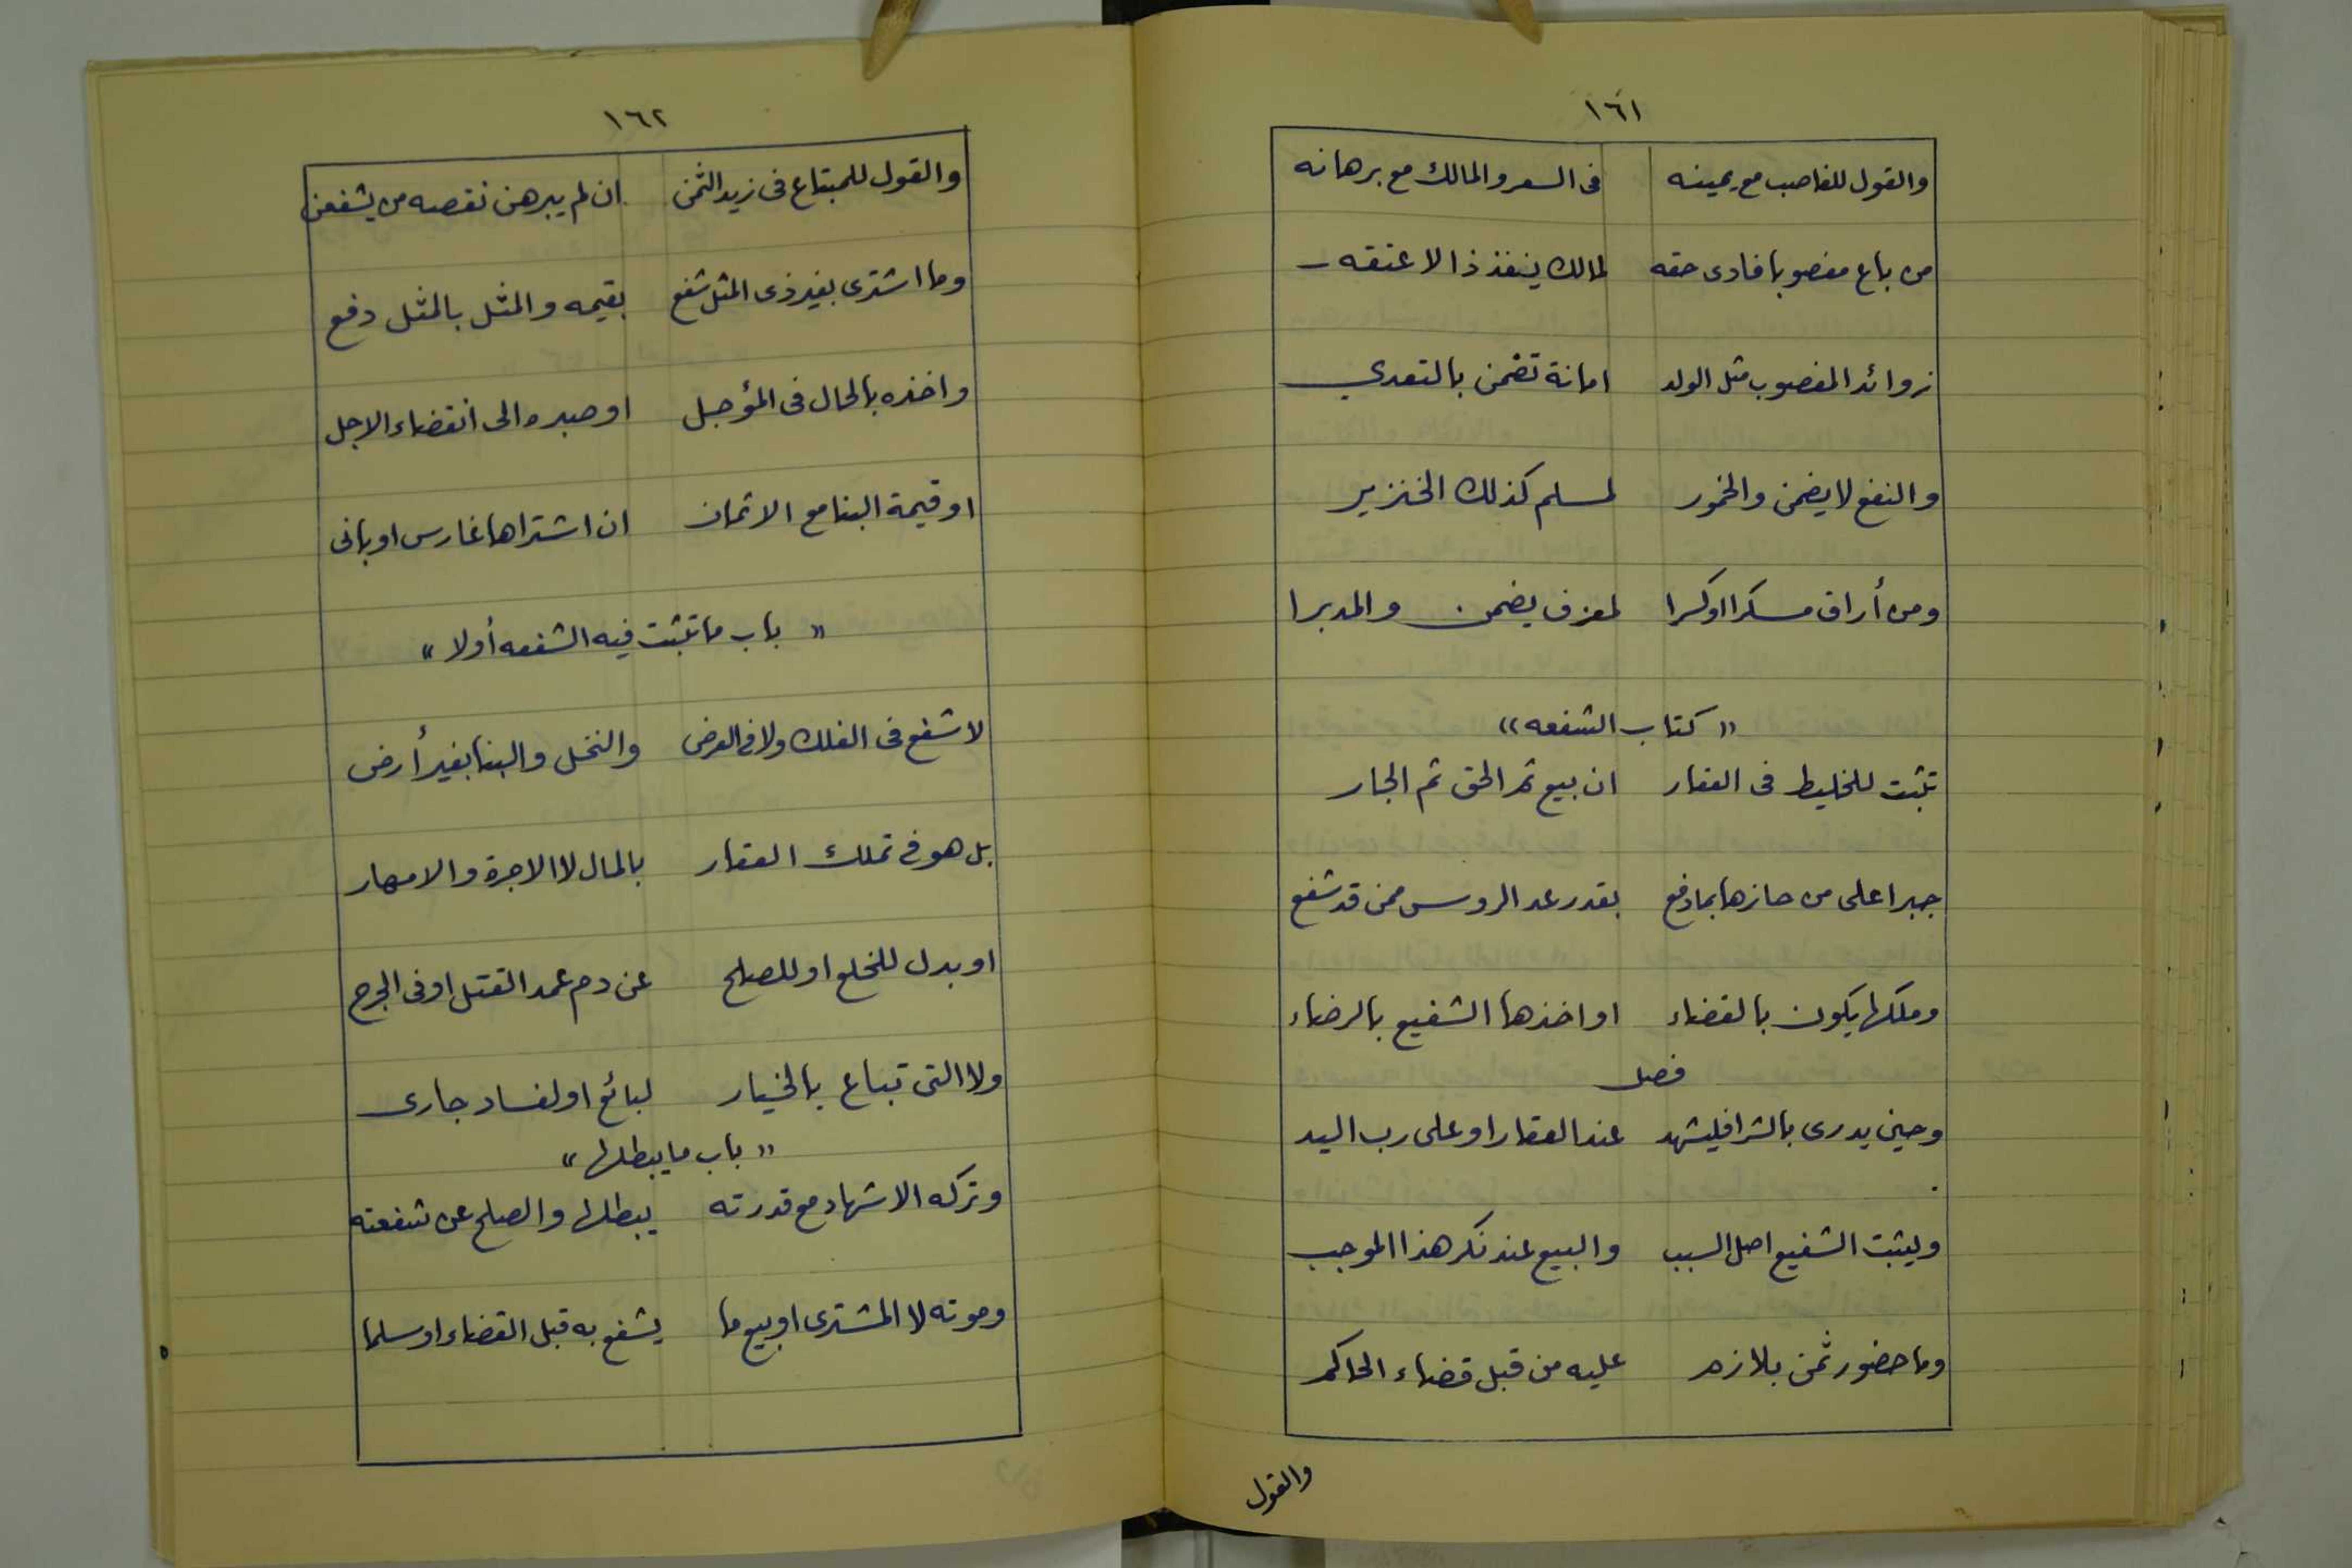 ١٦١
والقول للغاصب مع يمينه في السعر والمالك مع برهانه
من باع مغصوبا فادى حقه لمالك ينفذ ذا لا عتقه
زوائد المغصوب مثل الولد امانة تضمن بالتعدي
والنفع لا يضمن والخمور لمسلم كذلك الخنزير
ومن أراق مسكرا او كسرا لمعزف يضمن والمدبرا
"كتاب الشفعه"
تثبت للخليط في العقار ان بيع ثم الحق ثم الجار
جبرا على من حازها بما دفع بقدر عد الروس ممن قد شفع
وملكها يكون بالقضاء او اخذها الشفيع بالرضاء
فصل
وحين يدرى بالشرا فليشهد عند العقار او على رب اليد
وليثبت الشفيع اصل السبب والبيع عند نكر هذا الموجب
وما حضور ثمن بلازم عليه من قبل قضاء الحاكم
والقول
١٦٢
والقول للمبتاع في زيد الثمن ان لم يبرهن نقصه من يشفعن
وما اشترى بغير ذى المثل شفع بقيمه والمثل بالمثل دفع
واخذه بالحال في المؤجل او صبره الى انقضاء الاجل
او قيمة البنا مع الاثمان ان اشتراها غارس او بانى
"باب ما تثبت فيه الشفعه أولا"
لا شفع في الفلك ولا في العرض والنخل والبنا بغير أرض
بل هو في تملك العقار بالمال لا الاجرة والامهار
او بدل للخلع او للصلح عن دم عمد القتل او في الجرح
ولا التى تباع بالخيار لبائع او لفساد جارى
"باب ما يبطلها"
وتركه الاشهاد مع قدرته يبطلها والصلح عن شفعته
وموته لا المشترى او بيع ما يشفع به قبل القضاء او سلما